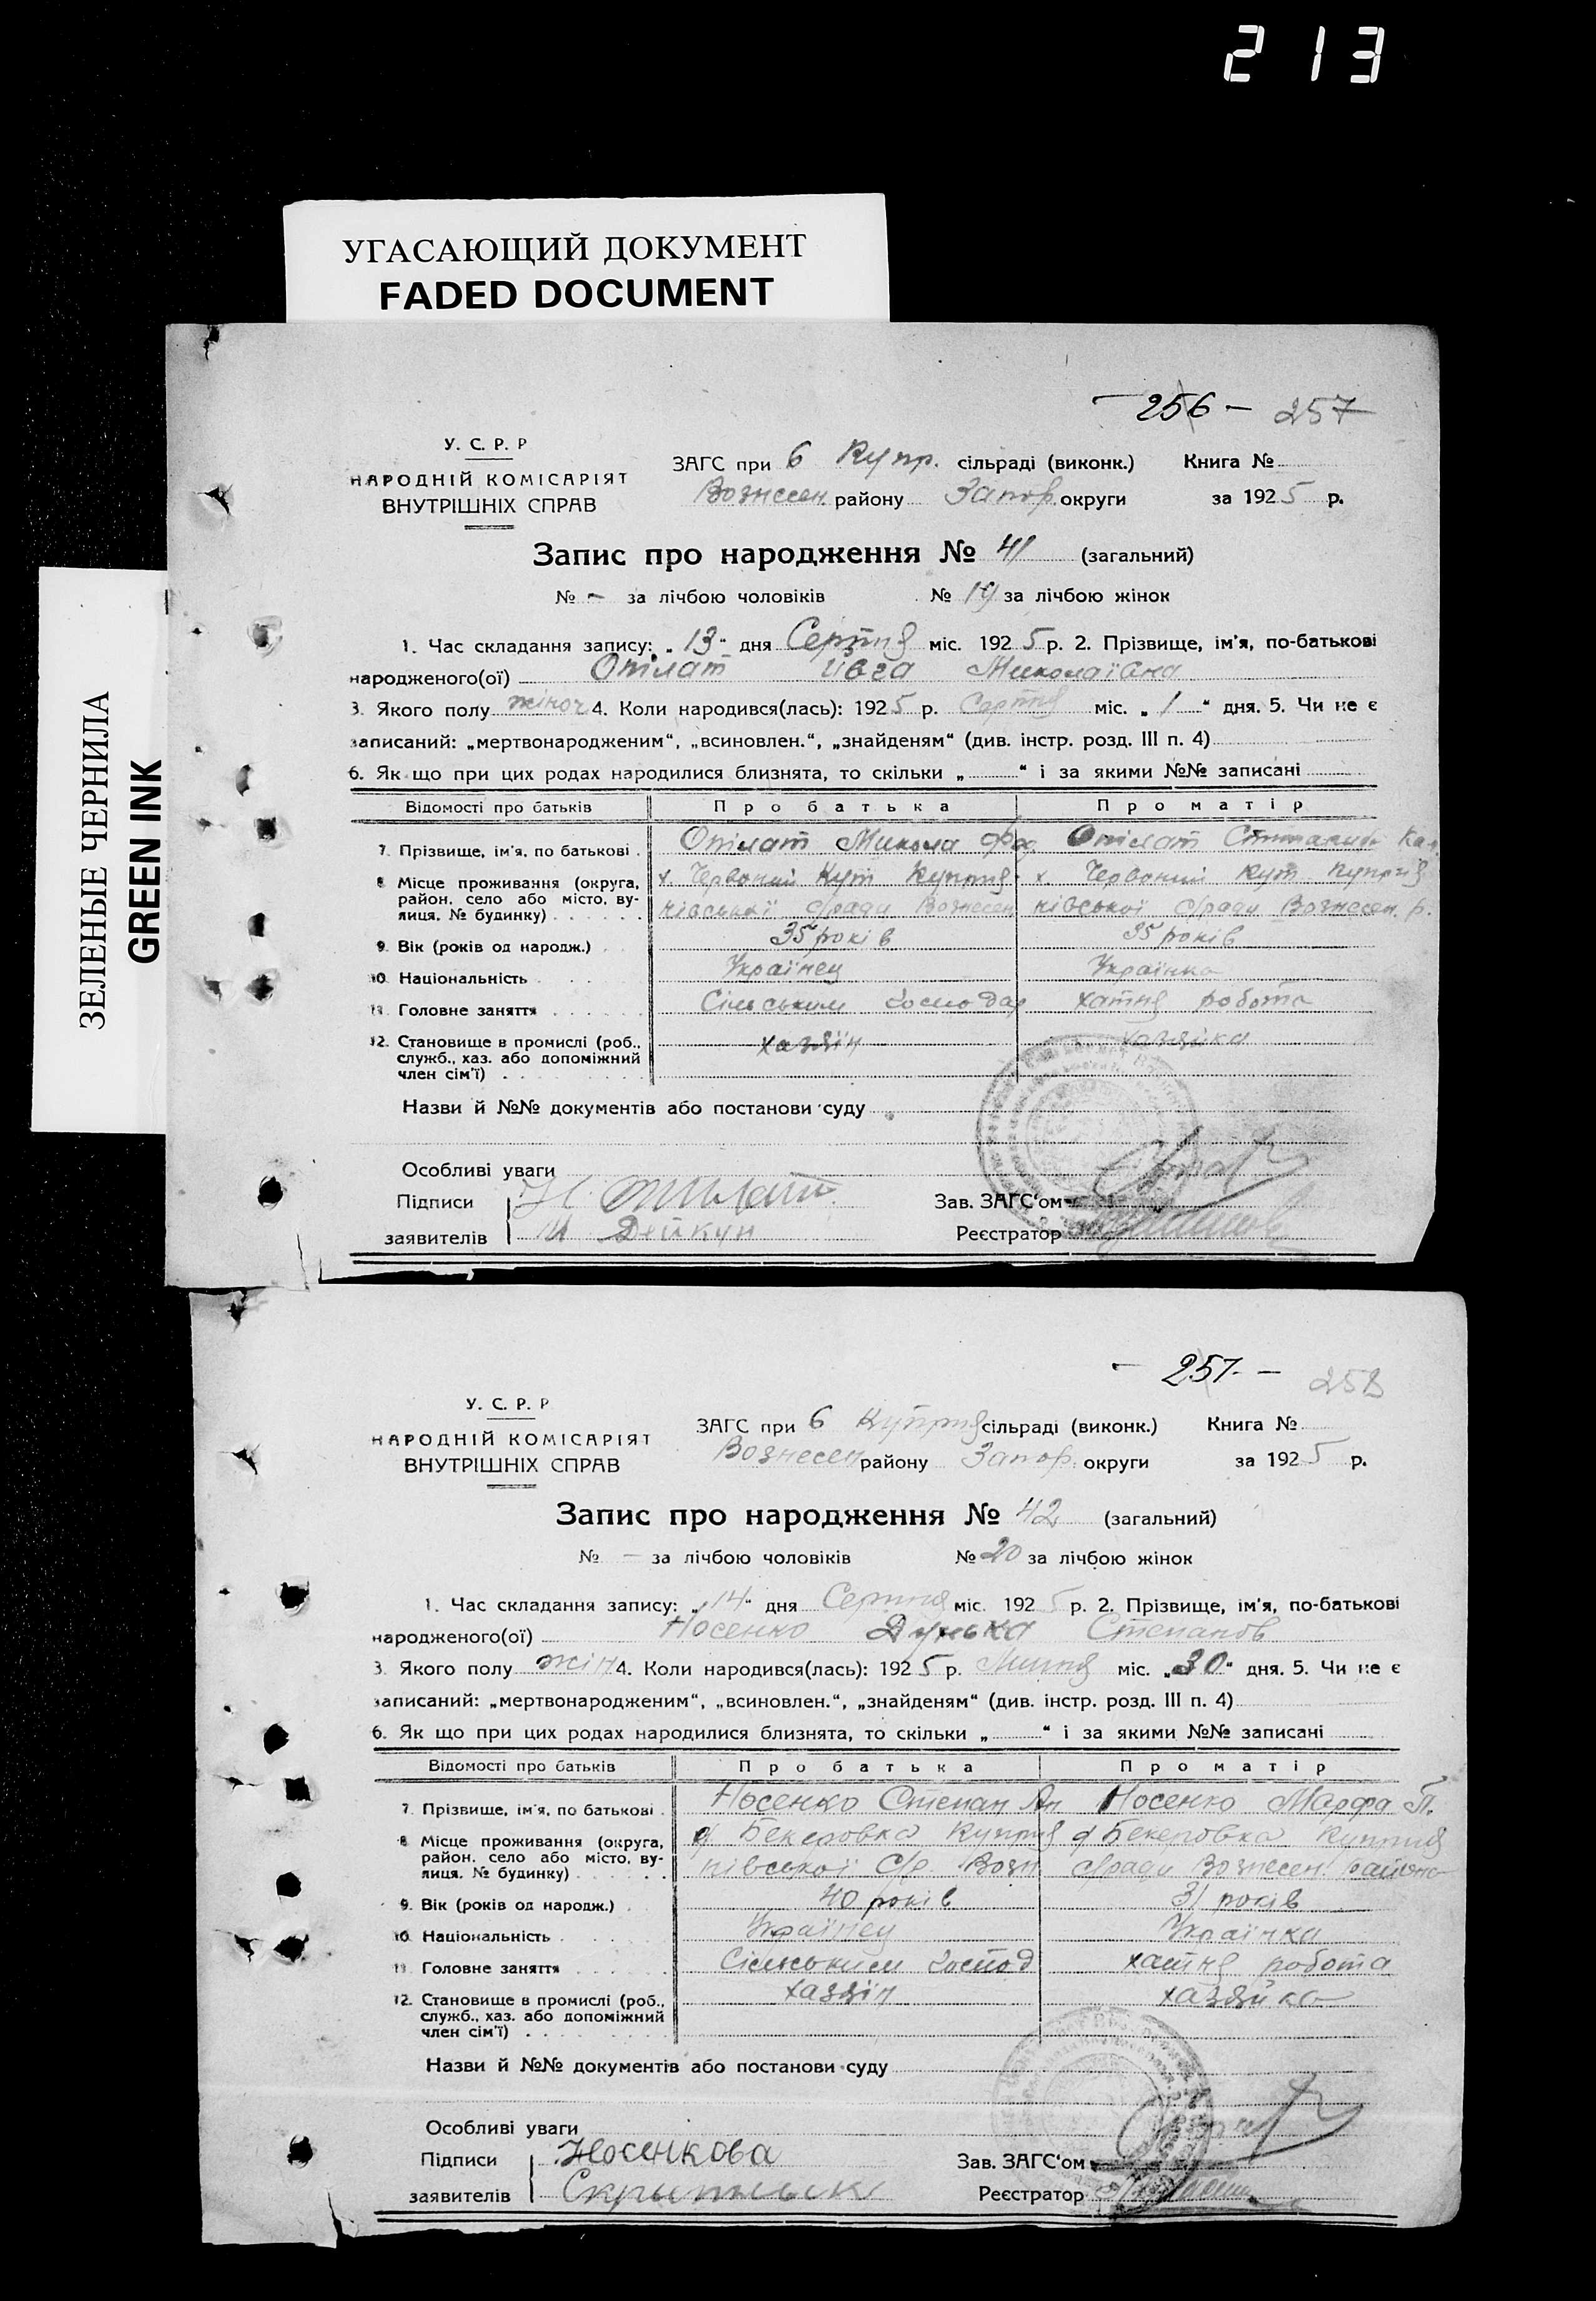 213
УГАСАЮЩИЙ ДОКУМЕНТ
FADED DOCUMENT
ЗЕЛЕНЫЕ ЧЕРНИЛА
GREEN INK
– 256 – 257
У. С. Р. Р
НАРОДНІЙ КОМІСАРІЯТ
ВНУТРІШНІХ СПРАВ
ЗАГС при 6 Купр. сільраді (виконк.) Книга №
Вознесен. району Запор. округи за 1925 р.
Запис про народження № 41 (загальний)
№ – за лічбою чоловіків № 19 за лічбою жінок
1. Час складання запису: „13“ дня Серпня міс. 1925 р. 2. Прізвище, ім'я, по-батькові
народженого(ої) Опілат Ивга Миколаївна
3. Якого полу жіноч 4. Коли народився(лась): 1925 р. Серпня міс. „1“ дня. 5. Чи не є
записаний: „мертвонародженим“, „всиновлен.“, „знайденям“ (див. інстр. розд. III п. 4)
6. Як що при цих родах народилися близнята, то скільки „ “ і за якими №№ записані
Відомості про батьків Про батька Про матір
7. Прізвище, ім'я, по батькові Опілат Микола Фед Опілат
8 Місце проживання (округа, район, село або місто, вулиця, № будинку) х. Червоний Кут Купрія х. Червоний Кут Купрія
нівської с/ради Вознесен нівської с/ради Вознесен. р.
9. Вік (років од народж.) 35 років 35 років
10. Національність Українец Українка
11. Головне заняття Сільським господар хатня робота
12. Становище в промислі (роб., служб., хаз. або допоміжний член сім'ї) хазяїн хазяйка
Назви й №№ документів або постанови суду
Особливі уваги
Підписи Н. Опилат Зав. ЗАГС'ом
заявителів И Дейкун Реєстратор
– 257 – 258
У. С. Р. Р
НАРОДНІЙ КОМІСАРІЯТ
ВНУТРІШНІХ СПРАВ
ЗАГС при 6 Купрія сільраді (виконк.) Книга №
Вознесен району Запор. округи за 1925 р.
Запис про народження № 42 (загальний)
№ – за лічбою чоловіків № 20 за лічбою жінок
1. Час складання запису: „14“ дня Серпня міс. 1925 р. 2. Прізвище, ім'я, по-батькові
народженого(ої) Носенко Дунька Степанов
3. Якого полу жін 4. Коли народився(лась): 1925 р. Липня міс. „30“ дня. 5. Чи не є
записаний: „мертвонародженим“, „всиновлен.“, „знайденям“ (див. інстр. розд. III п. 4)
6. Як що при цих родах народилися близнята, то скільки „ “ і за якими №№ записані
Відомості про батьків Про батька Про матір
7. Прізвище, ім'я, по батькові Носенко Степан Ан Носенко Марфа П.
8 Місце проживання (округа, район, село або місто, вулиця, № будинку) Бекеровка Купрія Бекеровка Купрія
нівської С/р. Возн с/ради Вознесен. района
9. Вік (років од народж.) 40 років 31 років
10. Національність Українец Українка
11. Головне заняття Сільським господ хатня робота
12. Становище в промислі (роб., служб., хаз. або допоміжний член сім'ї) хазяїн хазяйка
Назви й №№ документів або постанови суду
Особливі уваги
Підписи Носенкова Зав. ЗАГС'ом
заявителів Реєстратор